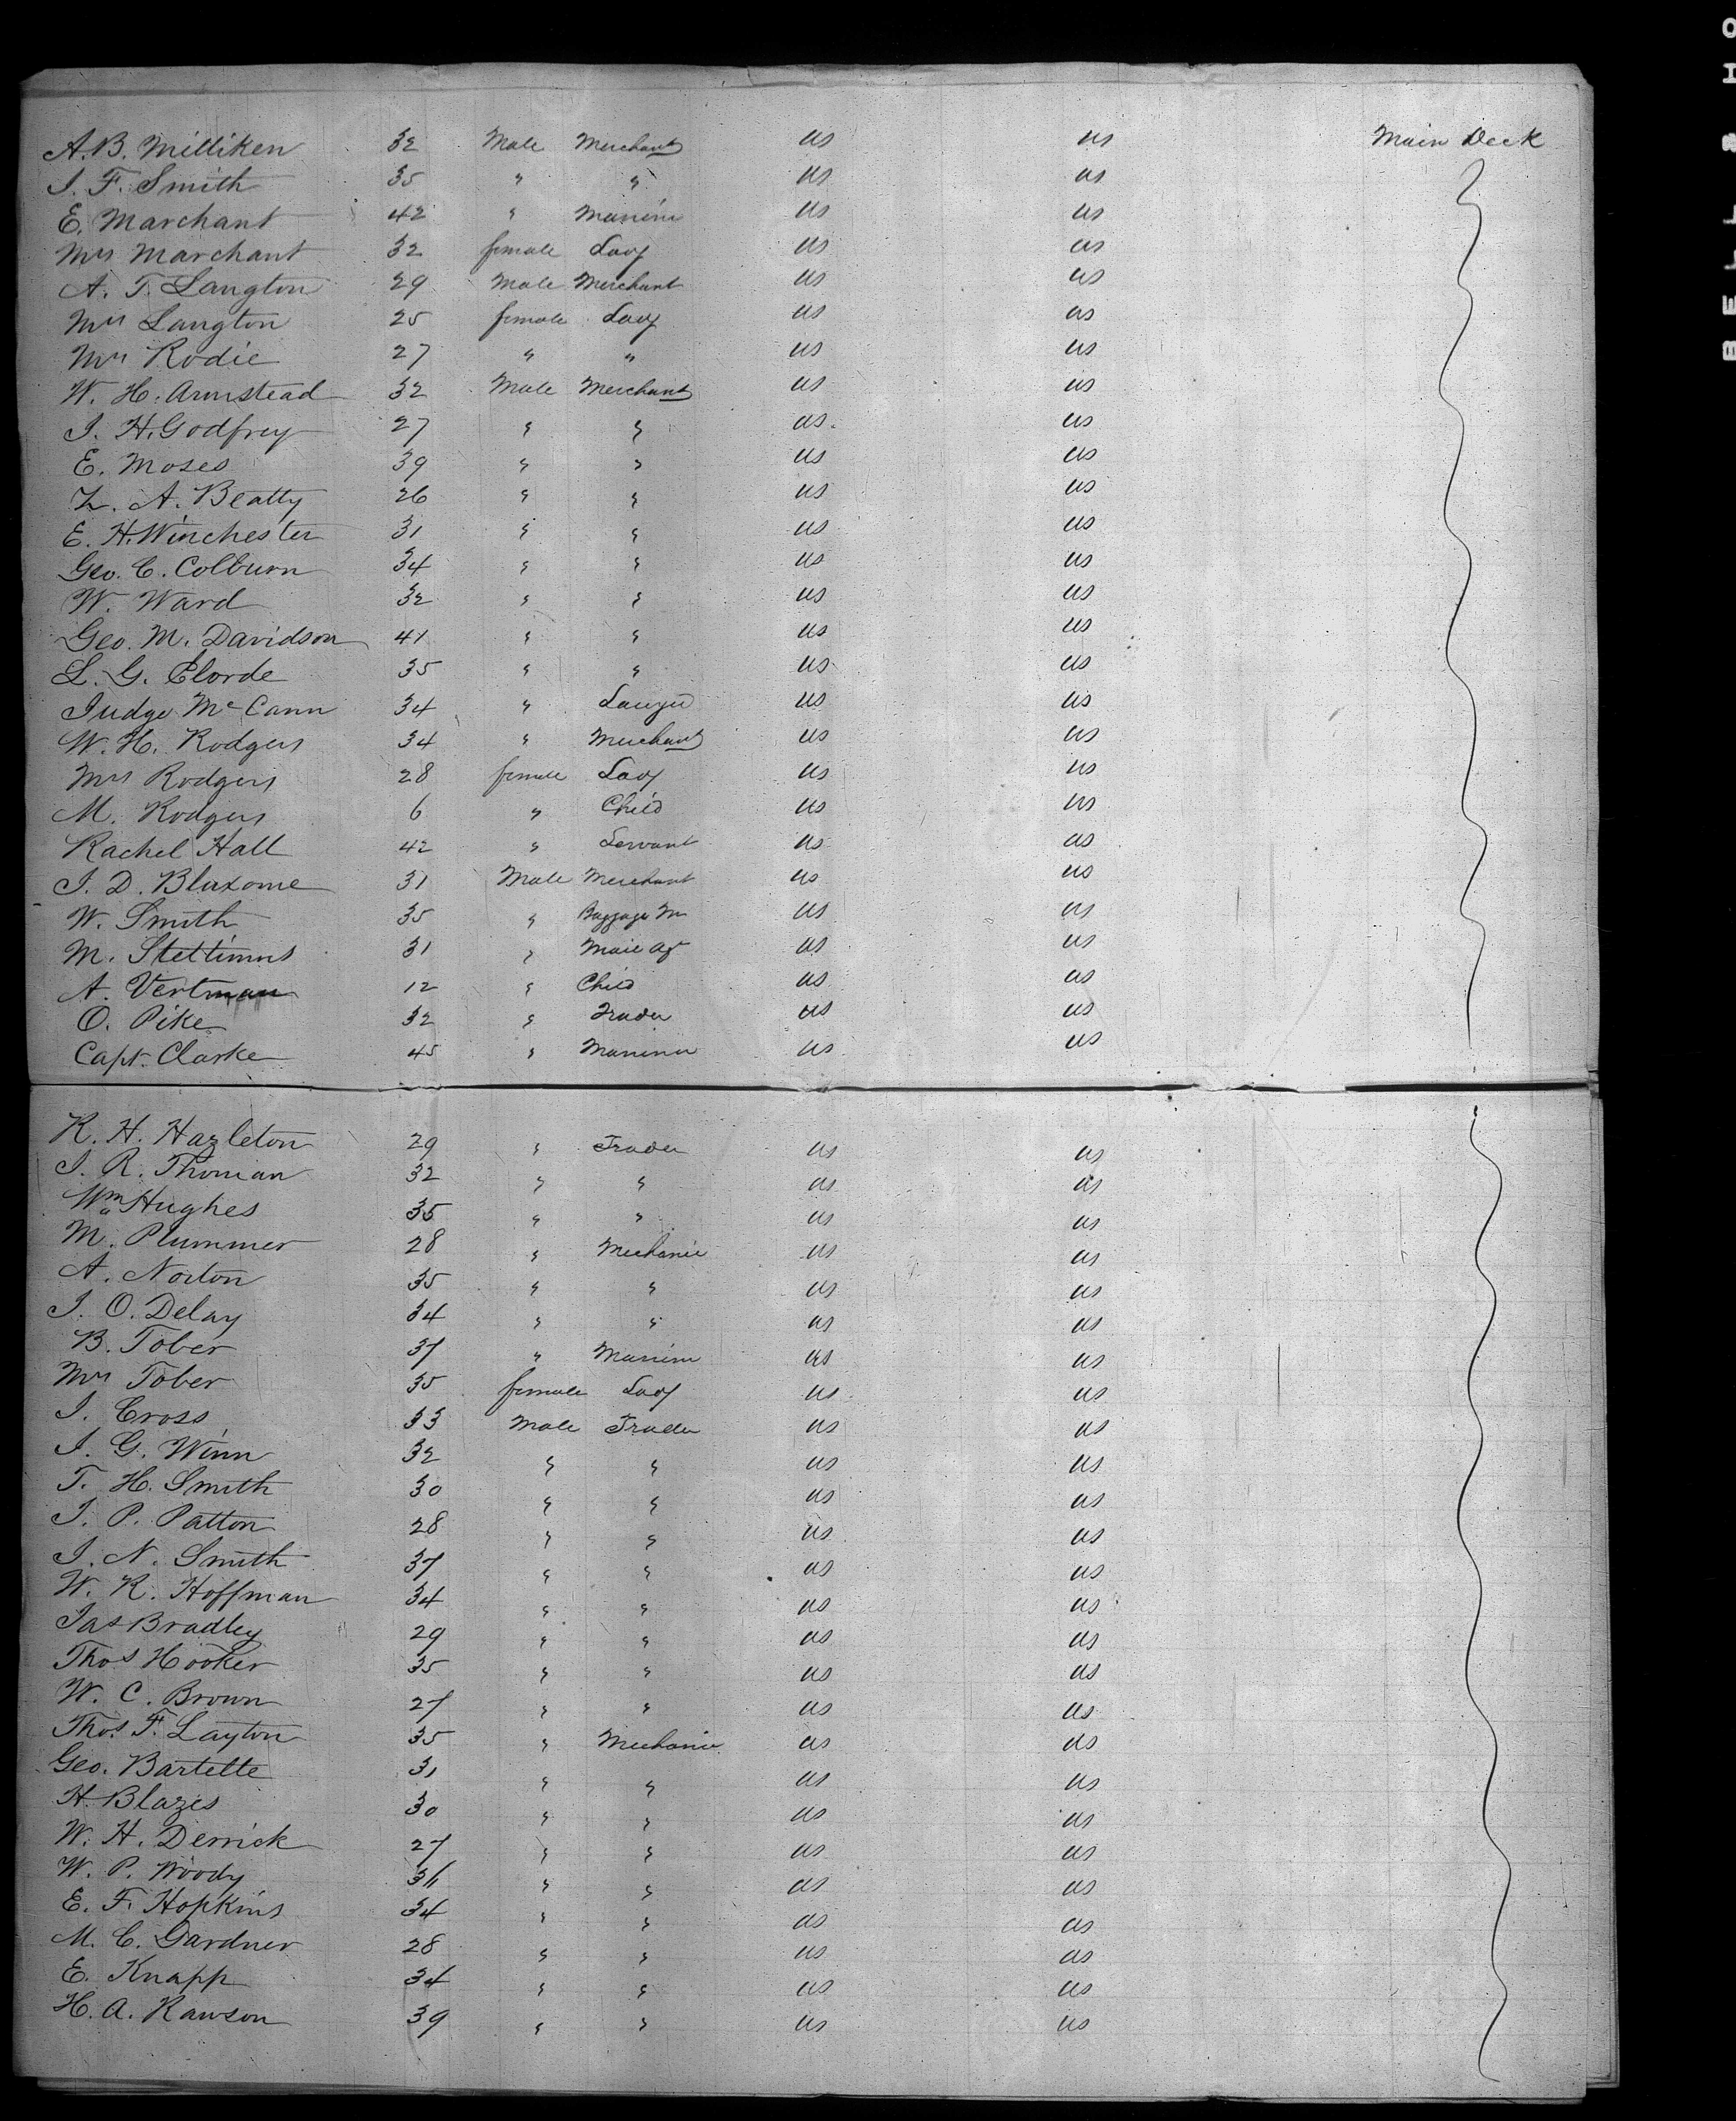 A. B. Milliken 32 Male Merchant US US Main Deck
J. F. Smith 35 " " US US
E. Marchant 42 " Marine US US
Mrs Marchant 32 female Lady US US
A. T. Langton 29 Male Merchant US US
Mrs Langton 25 female Lady US US
Mrs Rodie 27 " " US US
W. H. Armstead 32 Male Merchant US US
J. H. Godfrey 27 " " US US
E. Moses 39 " " US US
L. A. Beatty 26 " " US US
E. H. Winchester 31 " " US US
Geo. C. Colburn 34 " " US US
W. Ward 32 " " US US
Geo. M. Davidson 41 " " US US
L. G. Elorde 35 " " US US
Judge McCann 34 " US US
W. H. Rodgers 34 " Merchant US US
Mrs Rodgers 28 female Lady US US
M. Rodgers 6 " Child US US
Rachel Hall 42 " Servant US US
J. D. Blaxome 31 Male Merchant US US
W. Smith 35 " Baggage M US US
M. Stettinus 31 " Mail Ag US US
A. Vertman 12 " Child US US
O. Pike 32 " Trader US US
Capt. Clarke 45 " Mariner US US
R. H. Hazleton 29 " Trader US US
J. R. Thomian 32 " " US US
Wm Hughes 35 " " US US
M. Plummer 28 " Mechanic US US
A. Norton 35 " " US US
J. O. Delay 34 " " US US
B. Tober 37 " Marine US US
Mrs Tober 35 female Lady US US
J. Cross 33 Male Trader US US
J. G. Winn 32 " " US US
T. H. Smith 30 " " US US
J. P. Patton 28 " " US US
J. N. Smith 37 " " US US
W. R. Hoffman 34 " " US US
Jas Bradley 29 " " US US
Thos Hooker 35 " " US US
W. C. Brown 27 " " US US
Thos. F. Layton 35 " Mechanic US US
Geo. Bartette 31 " " US US
H. Blazes 30 " " US US
W. H. Derrick 27 " " US US
W. P. Woody 36 " " US US
E. F. Hopkins 34 " " US US
M. C. Gardner 28 " " US US
E. Knapp 34 " " US US
H. A. Rawson 39 " " US US